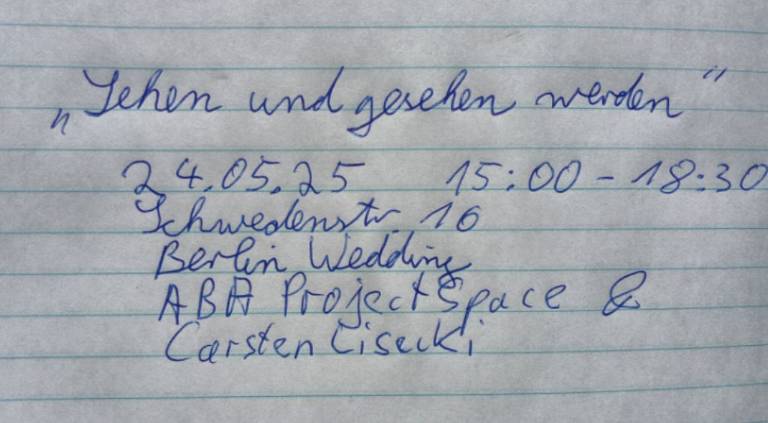 „Sehen und gesehen werden“
24.05.25 15:00 - 18:30
Schwedenstr. 16
Berlin Wedding
ABA Project Space &
Carsten Lisecki